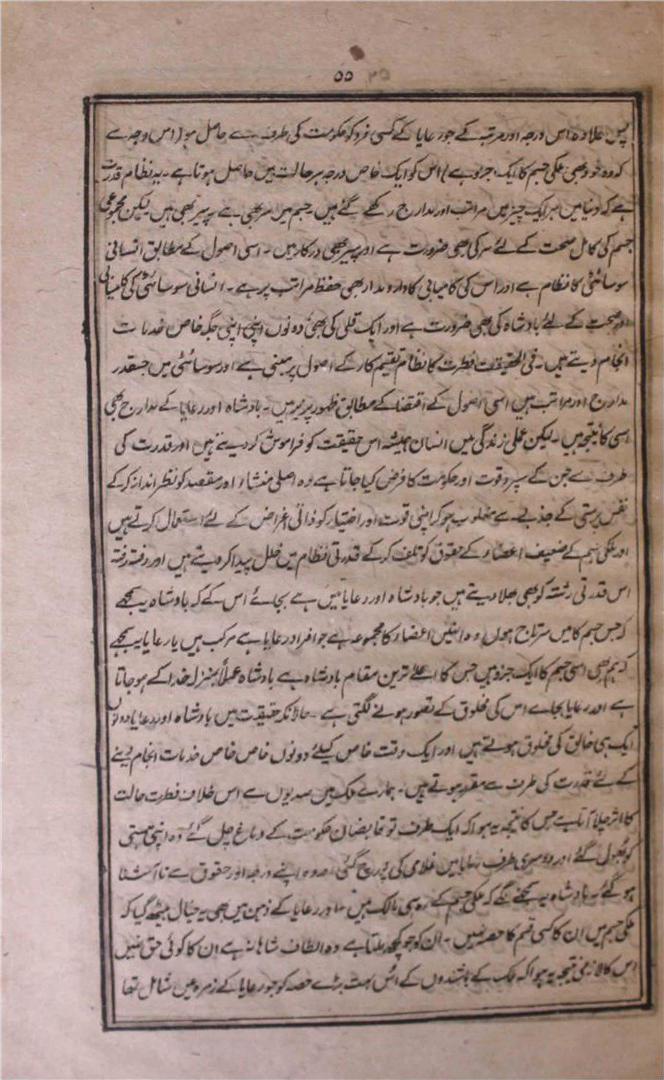 ۵۵
پس علاوہ اس درجہ اور مرتبہ کے جو رعایا کے کسی فرد کو حکومت کی طرف سے حاصل ہو (اس وجہ سے
کہ وہ خود بھی ملکی جسم کا ایک جزو ہے) اس کو ایک خاص درجہ ہر حالت میں حاصل ہوتا ہے ۔ یہ نظام قدرت
ہے کہ دنیا میں ہر ایک چیز میں مراتب اور مدارج رکھے گئے ہیں جسم میں سر بھی ہے پیر بھی ہیں لیکن مجموعی
جسم کی کامل صحت کے لئے سر کی بھی ضرورت ہے اور پیر بھی درکار ہیں ۔ اسی اصول کے مطابق انسانی
سوسائٹی کا نظام ہے اور اس کی کامیابی کا دار و مدار بھی حفظ مراتب پر ہے ۔ انسانی سوسائٹی کی کامیابی
اور صحت کے لئے بادشاہ کی بھی ضرورت ہے اور ایک قلی کی بھی دونوں اپنی اپنی جگہ خاص خدمات
انجام دیتے ہیں ۔ فی الحقیقت فطرت کا نظام تقسیم کار کے اصول پر مبنی ہے اور سوسائٹی میں جسقدر
مدارج اور مراتب ہیں اسی اصول کے اقتضا کے مطابق ظہور پزیر ہیں ۔ بادشاہ اور رعایا کے مدارج بھی
اسی کا نتیجہ ہیں ۔ لیکن عملی زندگی میں انسان ہمیشہ اس حقیقت کو فراموش کر دیتے ہیں اور قدرت کی
طرف سے جن کے سپرد قوت اور حکومت کا فرض کیا جاتا ہے وہ اصلی منشاء اور مقصد کو نظر انداز کر کے
نفس پرستی کے جذبے سے مغلوب ہو کر اپنی قوت اور اختیار کو ذاتی اغراض کے لئے استعمال کرتے ہیں
اور ملکی جسم کے ضعیف اعضاء کے حقوق کو تلف کر کے قدرتی نظام میں خلل پیدا کر دیتے ہیں اور رفتہ رفتہ
اس قدرتی رشتہ کو بھی بھلا دیتے ہیں جو بادشاہ اور رعایا میں ہے بجائے اس کے کہ بادشاہ یہ سمجھے
کہ جس جسم کا میں سرتاج ہوں وہ انہیں اعضاء کا مجموعہ ہے جو افراد رعایا سے مرکب ہیں یا رعایا یہ سمجھے
کہ ہم بھی اسی جسم کا ایک جزو ہیں جس کا اعلےٰ ترین مقام بادشاہ ہے بادشاہ عملاً بمنزلہ خدا کے ہو جاتا
ہے اور رعایا بجائے اس کی مخلوق کے تصور ہونے لگتی ہے ۔ حالانکہ حقیقت میں بادشاہ اور رعایا دونوں
ایک ہی خالق کی مخلوق ہوتے ہیں اور ایک وقت خاص کیلئے دونوں خاص خاص خدمات انجام دینے
کے لئے قدرت کی طرف سے مقرر ہوتے ہیں ۔ ہمارے ملک میں صدیوں سے اس خلاف فطرت حالت
کا اثر چلا آتا ہے جس کا نتیجہ یہ ہوا کہ ایک طرف تو قابضان حکومت کے دماغ چل گئے وہ اپنی ہستی
کو بھول گئے اور دوسری طرف رعایا میں غلامی کی روح گئی اور وہ اپنے درجہ اور حقوق سے نا آشنا
ہو گئے ۔ بادشاہ یہ سمجھنے لگے کہ ملکی جسم کے وہی مالک ہیں اور رعایا کے ذہن میں بھی یہ خیال بیٹھ گیا کہ
ملکی جسم میں ان کا کسی قسم کا حصہ نہیں ۔ ان کو جو کچھ ملتا ہے وہ الطاف شاہانہ ہے ان کا کوئی حق نہیں
اس کا لازمی نتیجہ یہ ہوا کہ ملک کے باشندوں کے اُس بہت بڑے حصہ کو جو رعایا کے زمرہ میں شامل تھا